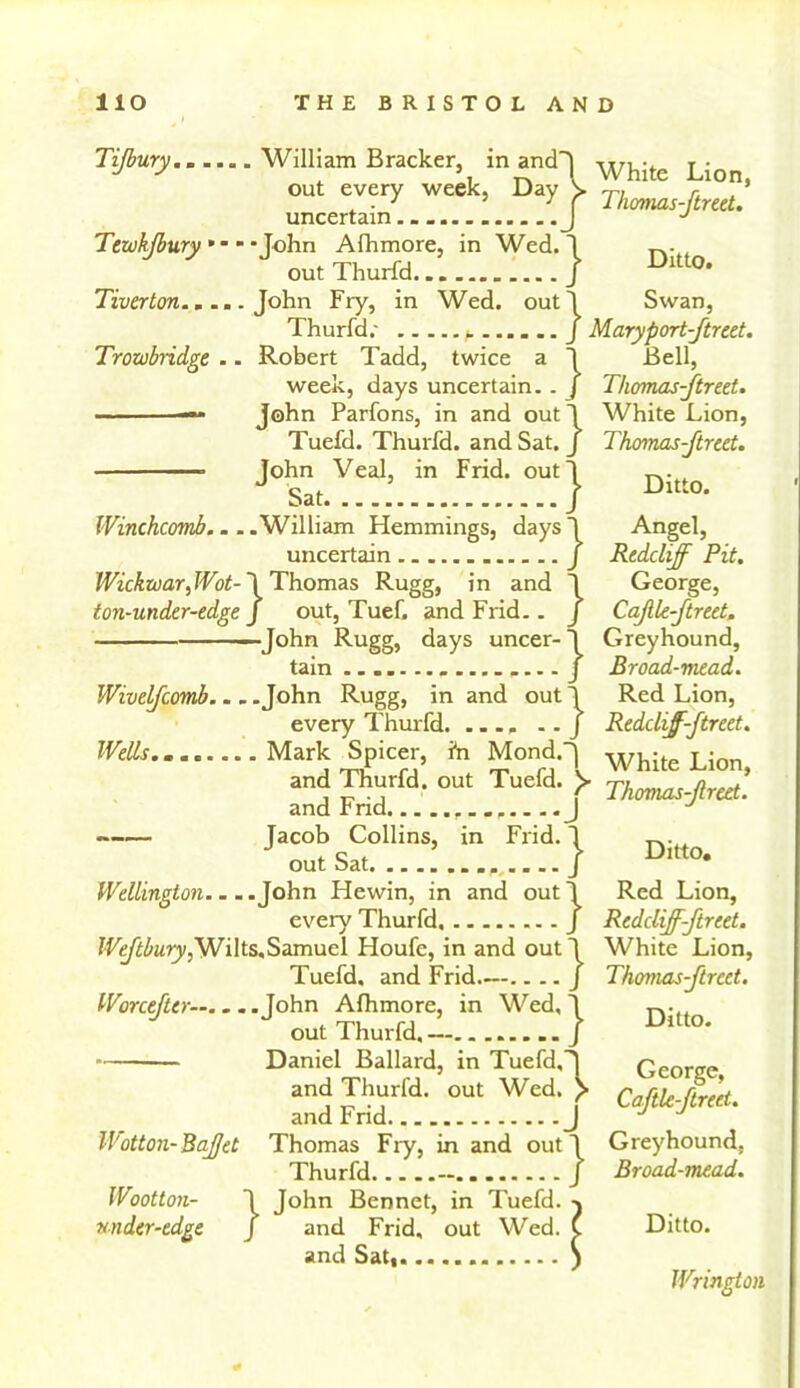 110 THE BRISTOL AND
Tiſbury....... William Bracker, in and } White Lion,
out every week, Day } Thomas-ſtreet.
uncertain............ }
Tewkſbury····John Aſhmore, in Wed. } Ditto.
out Thurſd........... }
Tiverton..... John Fry, in Wed. out } Swan,
Thurſd; ............ } Maryport-ſtreet.
Trowbridge .. Robert Tadd, twice a } Bell,
week, days uncertain. . } Thomas-ſtreet.
——— John Parſons, in and out } White Lion,
Tueſd. Thurſd. and Sat. } Thomas-ſtreet.
——— John Veal, in Frid. out } Ditto.
Sat................. }
Winchcomb....William Hemmings, days } Angel,
uncertain............ } Redcliff Pit.
Wickwar,Wot- } Thomas Rugg, in and } George,
ton-under-edge } out, Tueſ. and Frid. . } Caſtle-ſtreet.
———John Rugg, days uncer- } Greyhound,
tain................ } Broad-mead.
Wivelſcomb....John Rugg, in and out } Red Lion,
every Thurſd. ...... } Redcliff-ſtreet.
Wells........ Mark Spicer, in Mond. } White Lion,
and Thurſd. out Tueſd. } Thomas-ſtreet.
and Frid............. }
—— Jacob Collins, in Frid. } Ditto.
out Sat.............. }
Wellington....John Hewin, in and out } Red Lion,
every Thurſd......... } Redcliff-ſtreet.
Weſtbury,Wilts.Samuel Houſe, in and out } White Lion,
Tueſd. and Frid.—.... } Thomas-ſtreet.
Worceſter—....John Aſhmore, in Wed. } Ditto.
out Thurſd.—......... }
——— Daniel Ballard, in Tueſd. } George,
and Thurſd. out Wed. } Caſtle-ſtreet.
and Frid............. }
Wotton-Baſſet Thomas Fry, in and out } Greyhound,
Thurſd.....—......... } Broad-mead.
Wootton- } John Bennet, in Tueſd. }
under-edge } and Frid. out Wed. } Ditto.
and Sat,............ }
Wrington